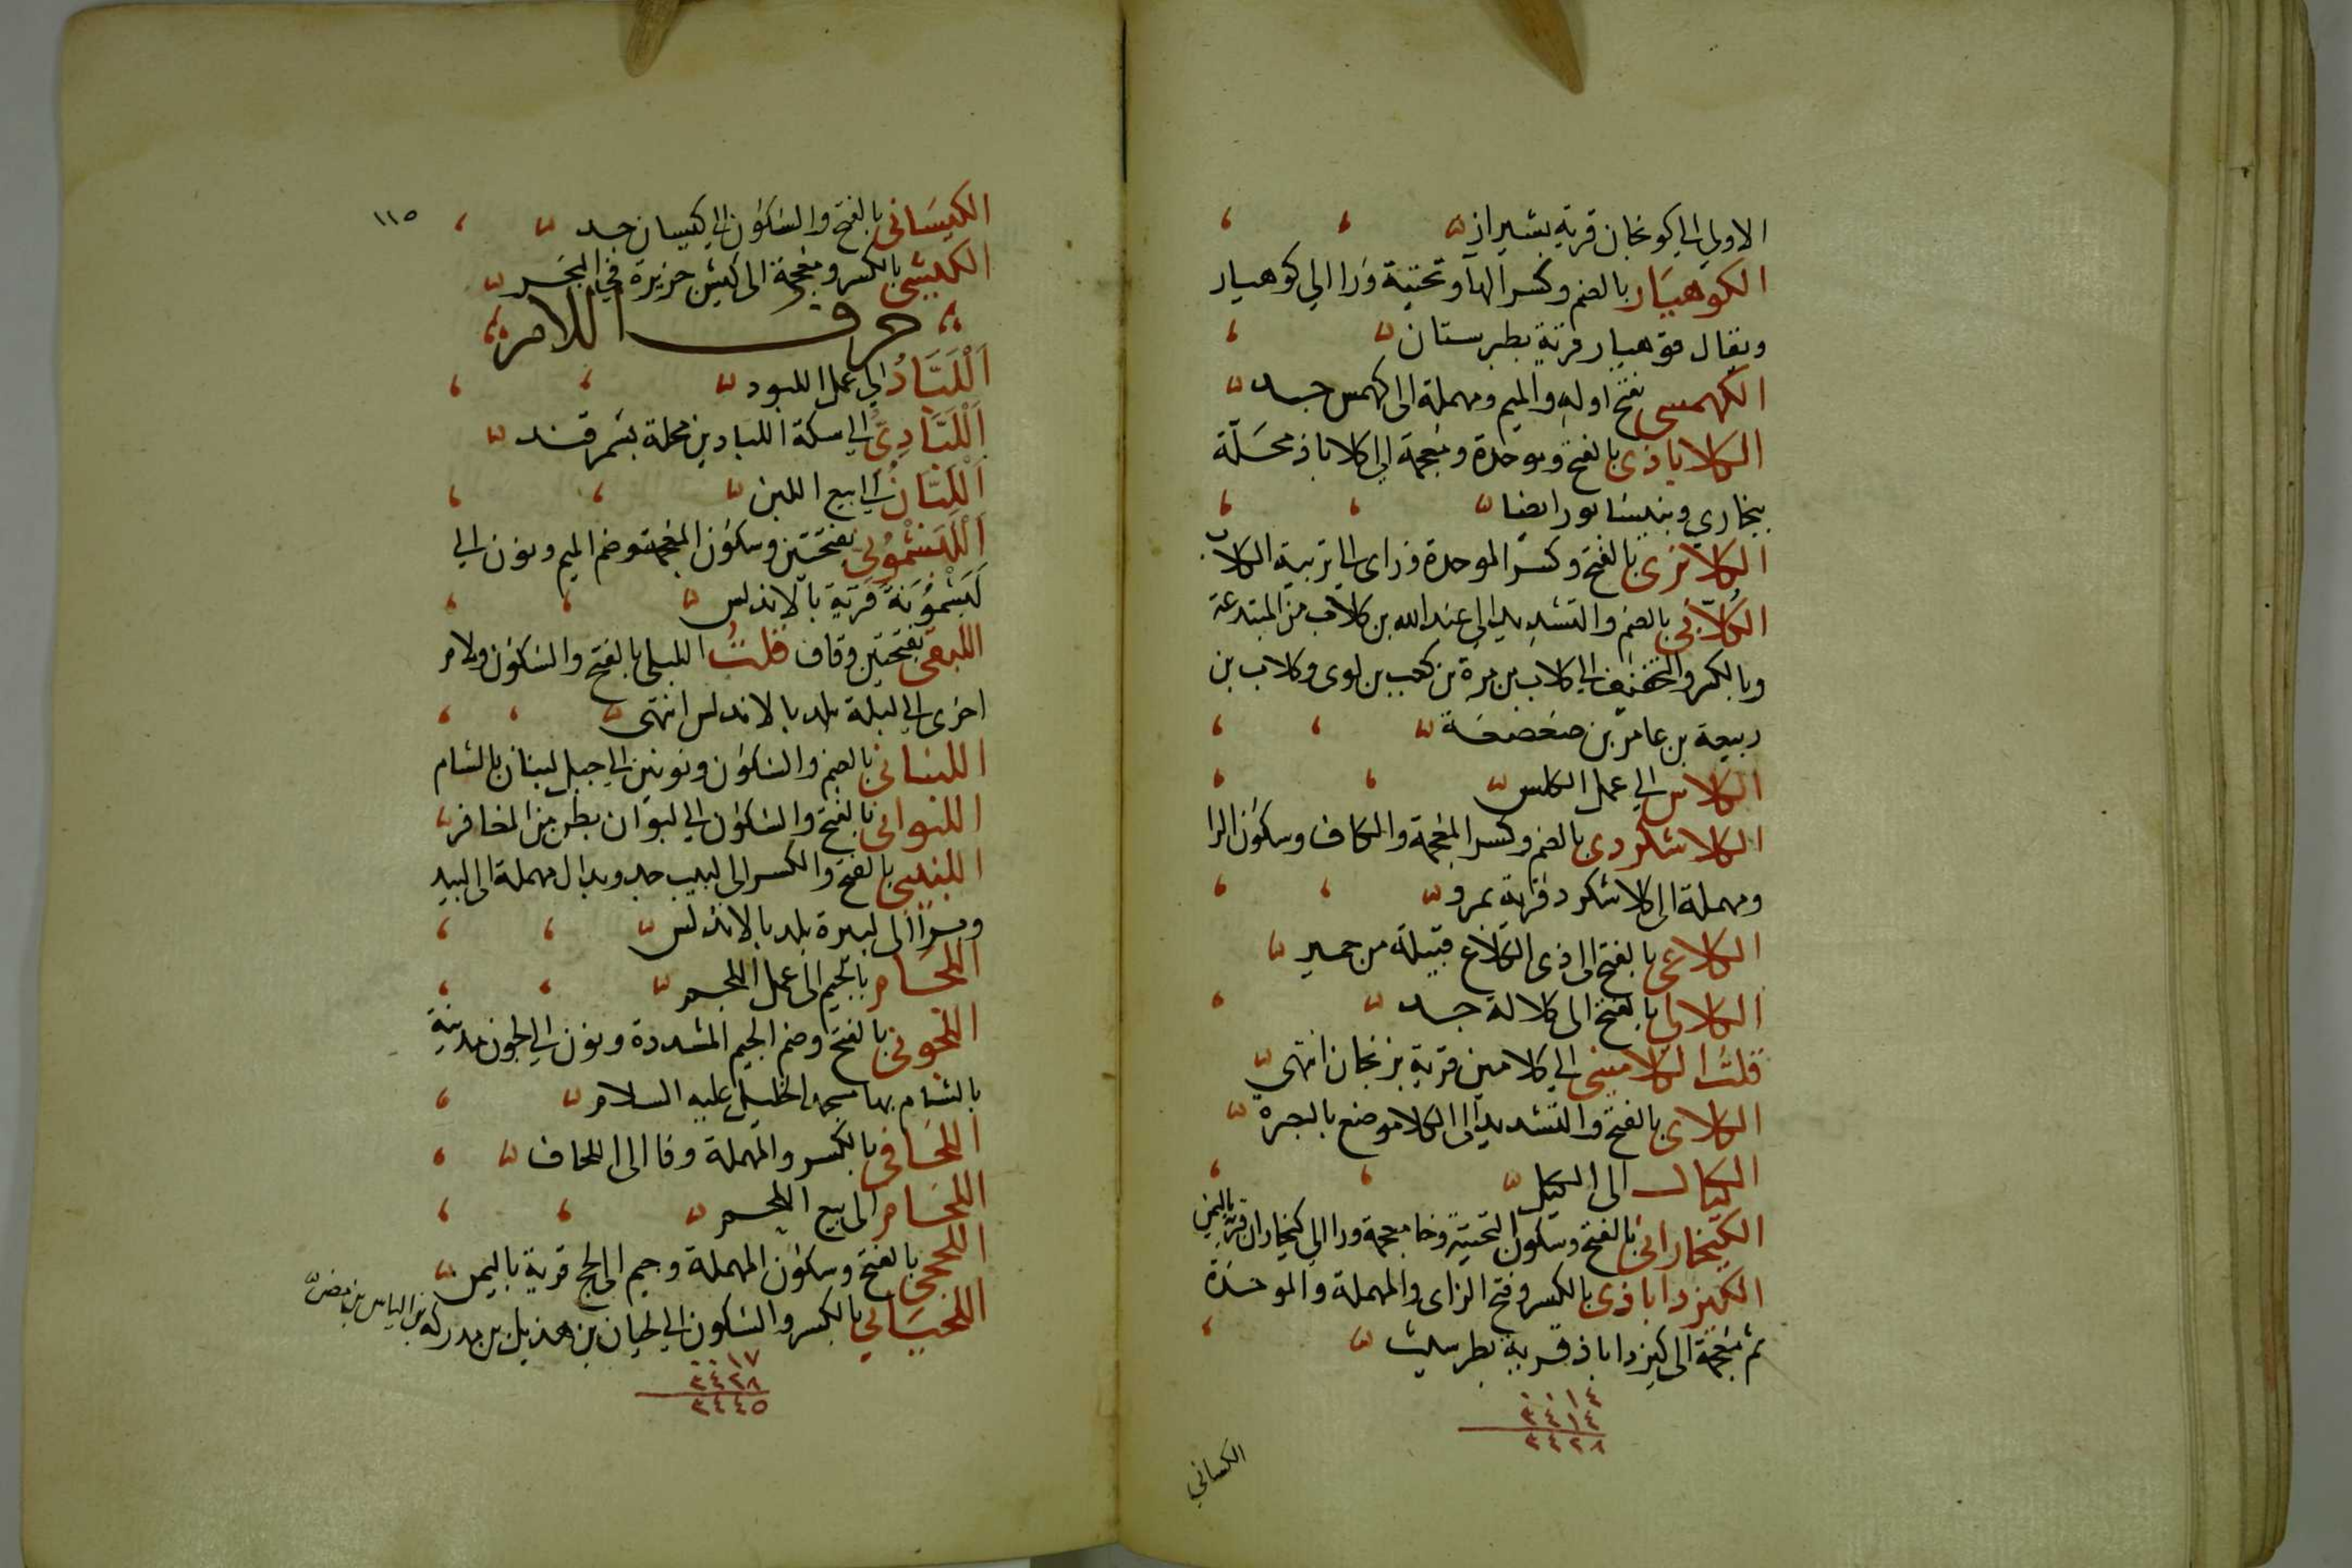 الاولي الي كونجان قرية بشيراز
الكوهيار بالضم وكسر الها وتحتية ورا الي كوهيار
ويقال قوهيار قرية بطبرستان
الكهمسى بفتح اوله والميم ومهملة الى كهمس جد
الكلاباذى بالفتح وموحدة ومعجمة الي كلاباذ محلة
ببخارى وبنيسابور ايضا
الكلابزى بالفتح وكسر الموحدة وزاى الي تربية الكلاب
الكلابى بالضم والتشديد الى عبد الله بن كلاب من المبتدعة
وبالكسر والتخفيف الي كلاب بن مرة بن كعب بن لوى وكلاب بن
ربيعة بن عامر بن صعصعة
الكلاس الي عمل الكلس
الكلاشكردى بالضم وكسر المعجمة والكاف وسكون الرا
ومهملة الى كلاشكرد قرية بمرو
الكلاعى بالفتح الى ذى الكلاع قبيلة من حمير
الكلالي بالفتح الى كلالة جد
قلت الكلامينى الي كلامين قرية بزنجان انتهى
الكلاى بالفتح والتشديد الى الكلا موضع بالبصرة
الكيال الى الكيل
الكيخارانى بالفتح وسكون التحتية وخا معجمة ورا الي كيخاران قرية باليمن
الكيزداباذى بالكسر وفتح الزاى والمهملة والموحدة
ثم معجمة الى كيزداباذ قرية بطريثيث
١٤
٣٤١٤
٣٤٢٨
الكيسانى
١١٥
الكيسانى بالفتح والسكون الي كيسان جد
الكيشى بالكسر ومعجمة الى كيش جزيرة في البحر
حرف اللام
اَللَّبَّادُ الي عمل اللبود
اَللَّبَّادِىُّ الي سكة اللبادين محلة بسمرقند
اَللَّبَّانُ الي بيع اللبن
اَللَّبَشْمُوْنِي بفتحتين وسكون المعجمة وضم الميم ونون الي
لَبَشْمُوْنَةَ قرية بالاندلس
اللبقى بفتحتين وقاف قلتُ اللبلى بالفتح والسكون ولام
اخرى الي لبلة بلد بالاندلس انتهى
اللبنانى بالضم والسكون ونونين الي جبل لبنان بالشام
اللبوانى بالفتح والسكون الي لبوان بطن من المعافر
اللبيبى بالفتح والكسر الى لبيب جد وبدال مهملة الى لبيد
وبرا الى لبيرة بلد بالاندلس
اللجام بالجيم الى عمل اللجم
اللجونى بالفتح وضم الجيم المشددة ونون الي لجون مدينة
بالشام بها مسجد الخليل عليه السلام
اللحافى بالكسر والمهملة وفا الى اللحاف
اللحام الى بيع اللحم
اللحجى بالفتح وسكون المهملة وجيم الى لحج قرية باليمن
اللحيانى بالكسر والسكون الي لحيان بن هذيل بن مدركة بن الياس بن مضر
١٧
٣٤٢٨
٣٤٤٥